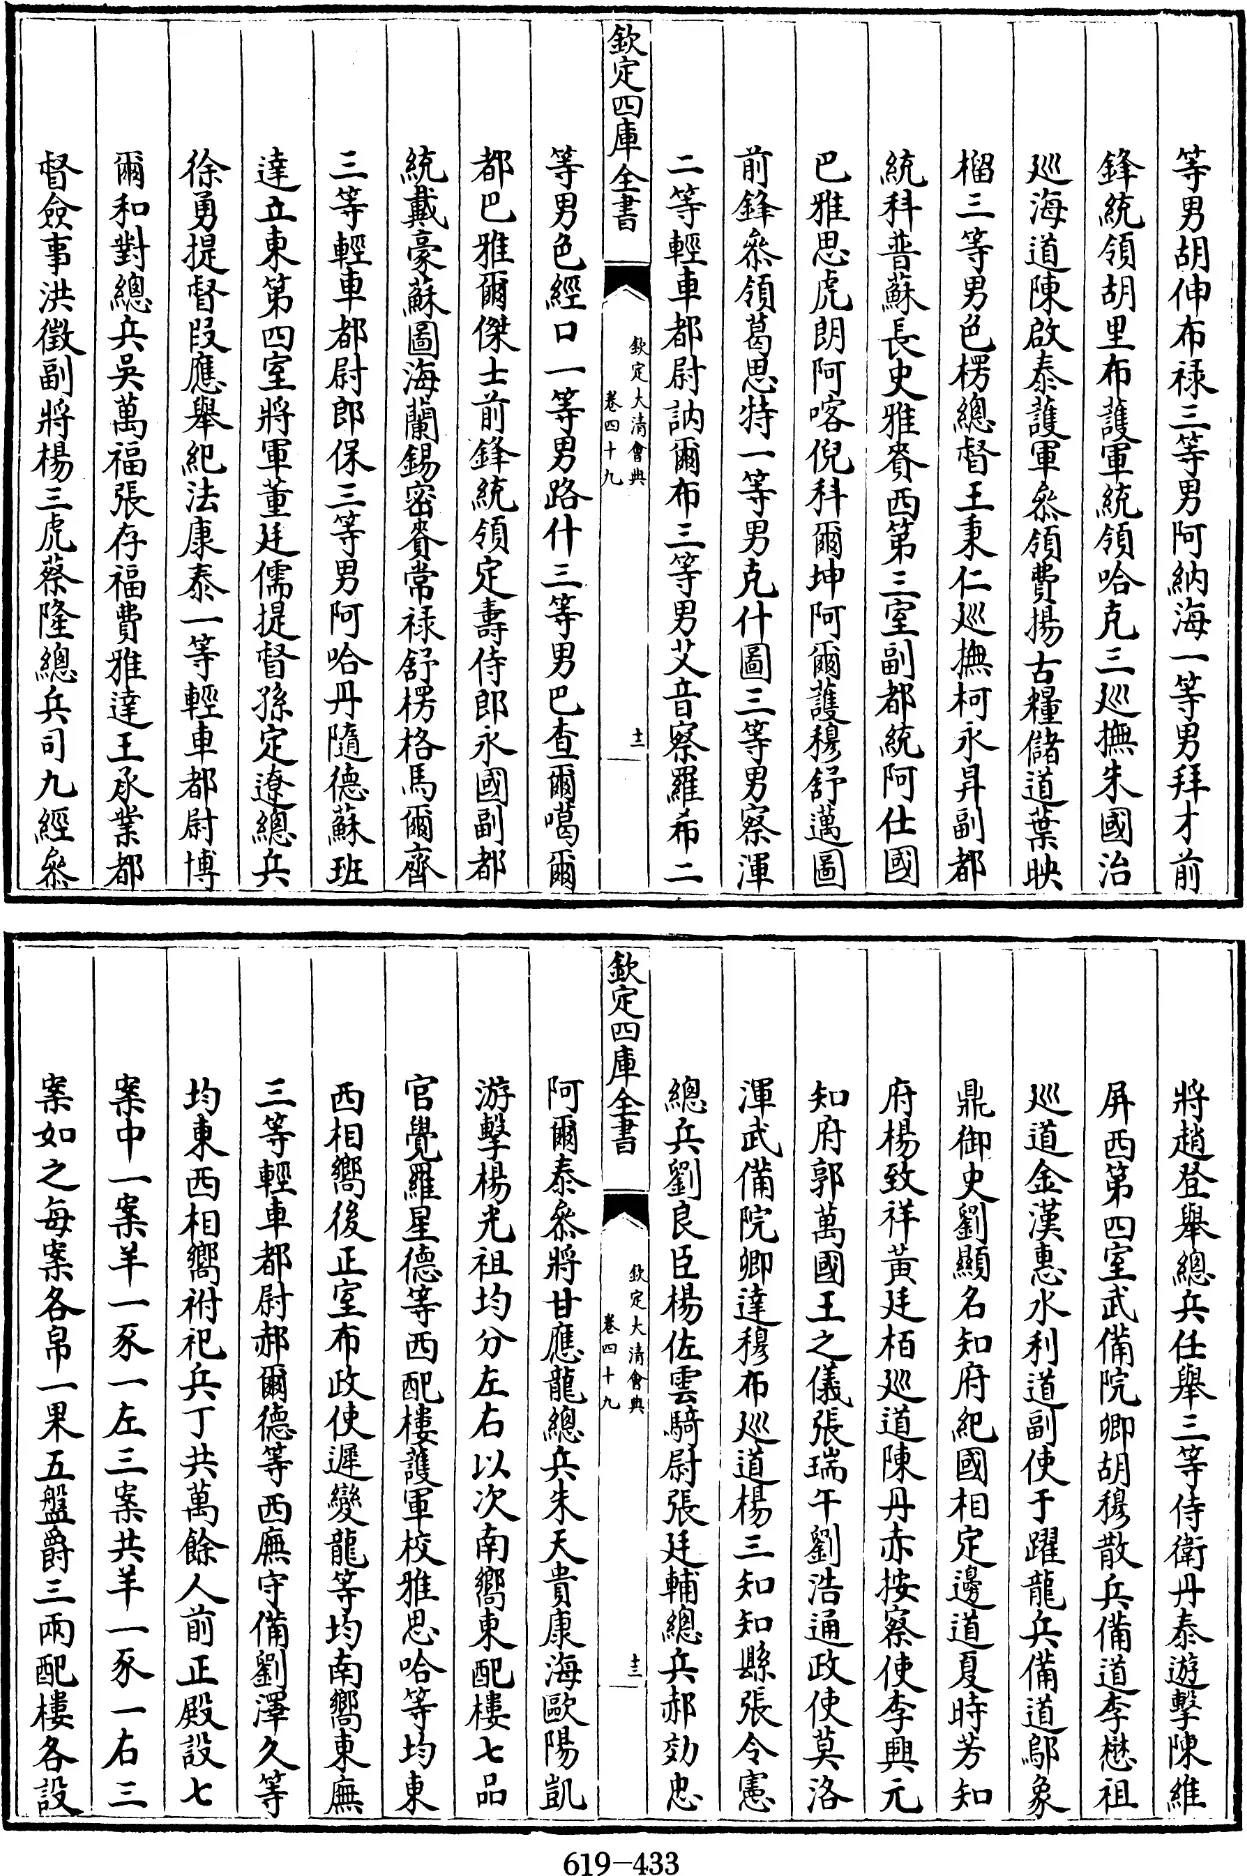 等男胡伸布祿三等男阿納海一等男拜才前
鋒統領胡里布護軍統領哈克三巡撫朱國治
巡海道陳啟泰護軍叅領費揚古糧儲道葉映
榴三等男色楞總督王秉仁巡撫柯永昇副都
統科普蘇長史雅賚西第三室副都統阿仕國
巴雅思虎朗阿喀倪科爾坤阿爾護穆舒邁圖
前鋒叅領葛思特一等男克什圖三等男察渾
二等輕車都尉訥爾布三等男艾音察羅希二
欽定四庫全書
欽定大清會典
卷四十九
十二
等男色經口一等男路什三等男巴查爾噶爾
都巴雅爾傑士前鋒統領定壽侍郎永國副都
統戴豪蘇圖海蘭錫密賚常祿舒楞格馬爾齊
三等輕車都尉郎保三等男阿哈丹隨德蘇班
達立東第四室將軍董廷儒提督孫定遼總兵
徐勇提督段應舉紀法康泰一等輕車都尉博
爾和對總兵吳萬福張存福費雅達王承業都
督僉事洪徵副將楊三虎蔡隆總兵司九經叅
將趙登舉總兵任舉三等侍衛丹泰遊擊陳維
屏西第四室武備院卿胡穆散兵備道李懋祖
巡道金漢惠水利道副使于躍龍兵備道鄔象
鼎御史劉顯名知府紀國相定邊道夏時芳知
府楊致祥黃廷栢巡道陳丹赤按察使李興元
知府郭萬國王之儀張瑞午劉浩通政使莫洛
渾武備院卿達穆布巡道楊三知知縣張令憲
總兵劉良臣楊佐雲騎尉張廷輔總兵郝効忠
欽定四庫全書
欽定大清會典
卷四十九
十三
阿爾泰叅將甘應龍總兵朱天貴康海歐陽凱
游擊楊光祖均分左右以次南嚮東配樓七品
官覺羅星德等西配樓護軍校雅思哈等均東
西相嚮後正室布政使遲變龍等均南嚮東廡
三等輕車都尉郝爾德等西廡守備劉澤久等
均東西相嚮祔祀兵丁共萬餘人前正殿設七
案中一案羊一豕一左三案共羊一豕一右三
案如之每案各帛一果五盤爵三兩配樓各設
619-433